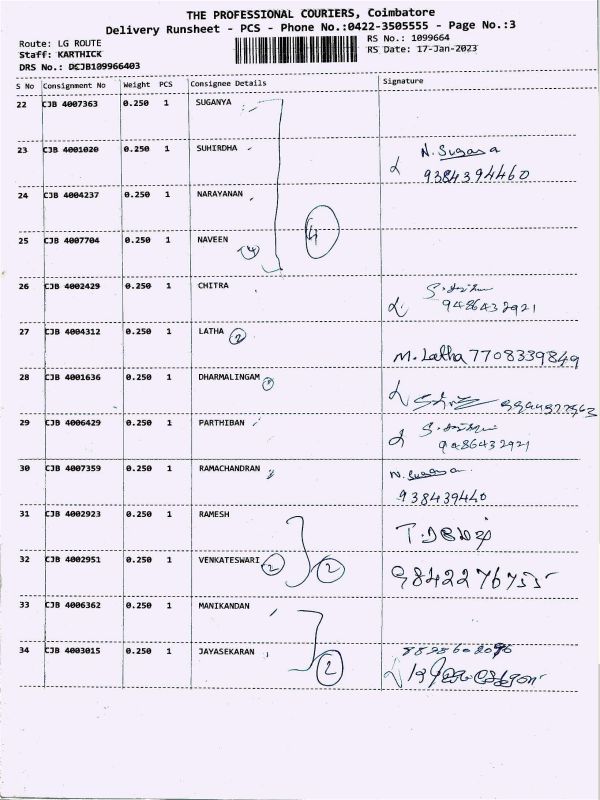 THE PROFESSIONAL COURIERS, Coimbatore
Delivery Runsheet - PCS - Phone No.:0422-3505555 - Page No.:3
Route: LG ROUTE
RS No.: 1099664
Staff: KARTHICK
RS Date: 17-Jan-2023
DRS No.: DCJB109966403
S No Consignment No Weight PCS Consignee Details Signature
22 CJB 4007363 0.250 1 SUGANYA
23 CJB 4001020 0.250 1 SUHIRDHA N. Sugasa
9384394460
24 CJB 4004237 0.250 1 NARAYANAN
4
25 CJB 4007704 0.250 1 NAVEEN
26 CJB 4002429 0.250 1 CHITRA
9486432921
27 CJB 4004312 0.250 1 LATHA 2
M. Latha 7708339849
28 CJB 4001636 0.250 1 DHARMALINGAM
29 CJB 4006429 0.250 1 PARTHIBAN
9486432921
30 CJB 4007359 0.250 1 RAMACHANDRAN N. Sugasa
938439440
31 CJB 4002923 0.250 1 RAMESH
32 CJB 4002951 0.250 1 VENKATESWARI 2 2
33 CJB 4006362 0.250 1 MANIKANDAN
34 CJB 4003015 0.250 1 JAYASEKARAN
2